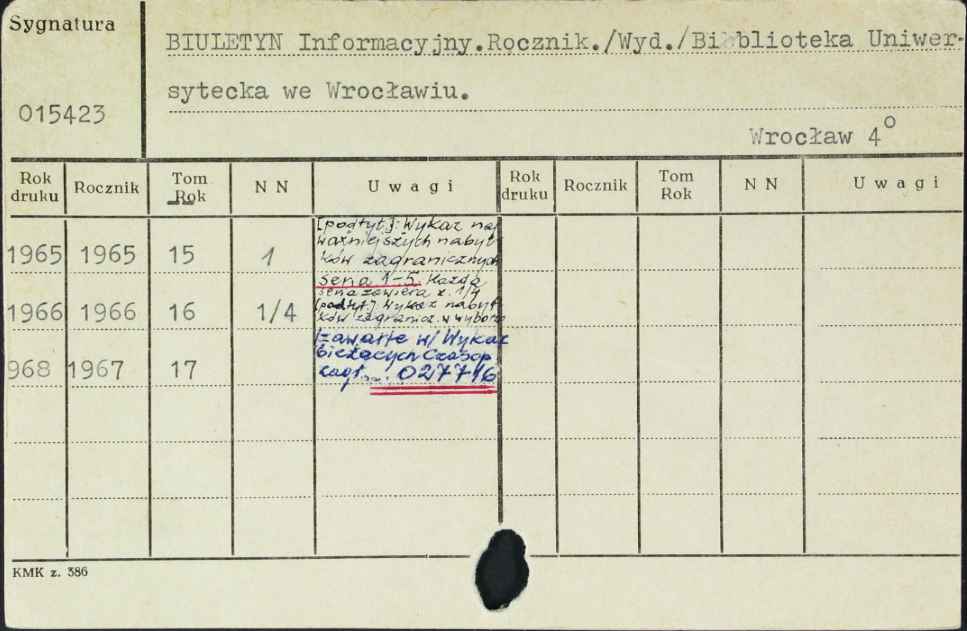 Sygnatura
BIULETYN Informacyjny.Rocznik./Wyd./Biblioteka Uniwer-
sytecka we Wrocławiu.
015423
Wrocław 4°
Rok druku Rocznik Tom Rok NN Uwagi Rok druku Rocznik Tom Rok NN Uwagi
1965 1965 15 1
[podtyt.]: Wykaz naj
ważniejszych nabyt
ków zagranicznych
seria 1-5. Każda
seria zawiera z. 1/4
1966 1966 16 1/4
[podtyt.] Wykaz nabyt
ków zagranicz. w wyborze
968 1967 17
zawarte w/ Wykaz
bieżących Czasop
zagr. 027716
KMK z. 386